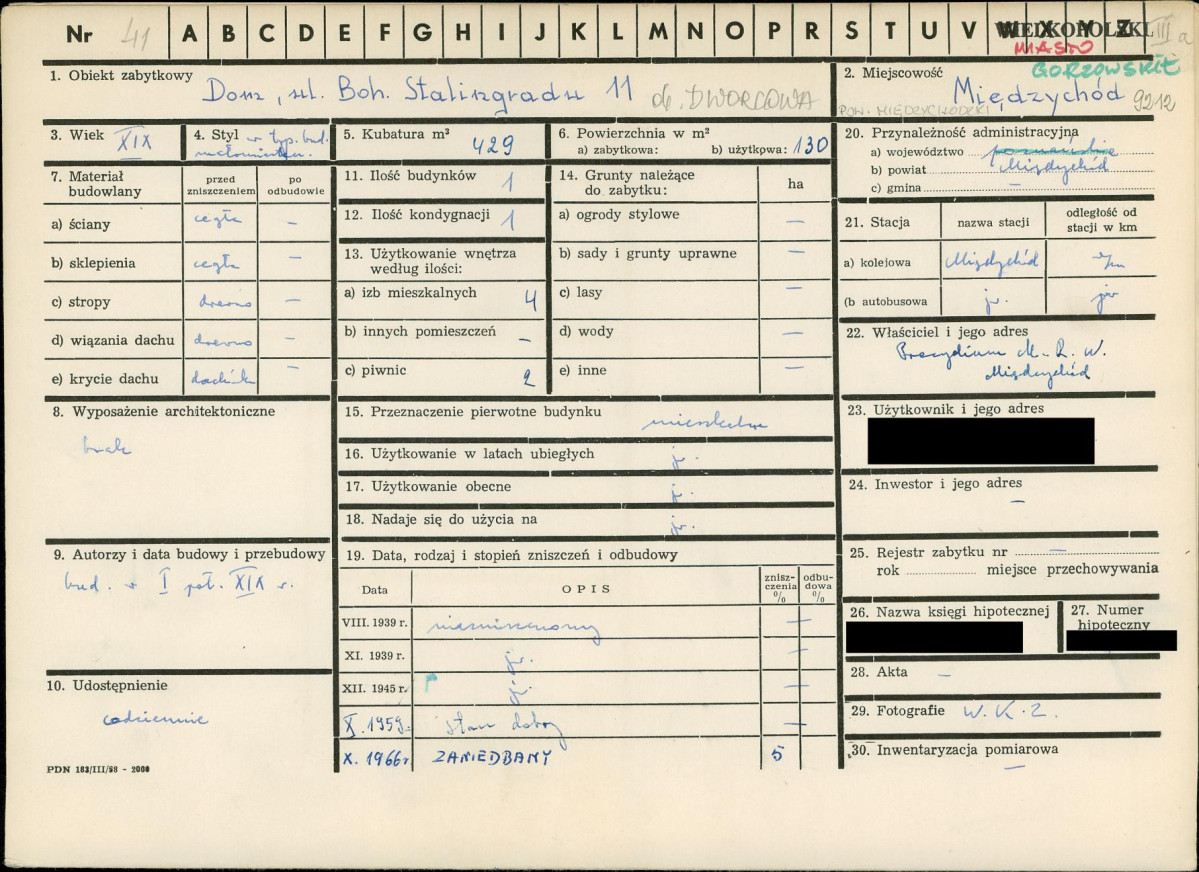 Nr 41 A B C D E F G H I J K L M N O P R S T U V W X Y Z III a
WIELKOPOLSKI
MIASTO
GORZOWSKIE
1. Obiekt zabytkowy
Dom, ul. Boh. Stalingradu 11 ob. DWORCOWA
2. Miejscowość
Międzychód 9212
POW. MIĘDZYCHODZKI
3. Wiek XIX
4. Styl w typ. bud. małomiast.
5. Kubatura m³
429
6. Powierzchnia w m²
a) zabytkowa: b) użytkowa: 130
7. Materiał budowlany
przed zniszczeniem
po odbudowie
a) ściany cegła —
b) sklepienia cegła —
c) stropy drewno —
d) wiązania dachu drewno —
e) krycie dachu dachówk —
8. Wyposażenie architektoniczne
brak
9. Autorzy i data budowy i przebudowy
bud. w I poł. XIX w.
10. Udostępnienie
codziennie
PDN 183/III/58 - 2000
11. Ilość budynków 1
12. Ilość kondygnacji 1
13. Użytkowanie wnętrza według ilości:
a) izb mieszkalnych 4
b) innych pomieszczeń —
c) piwnic 2
14. Grunty należące do zabytku:
ha
a) ogrody stylowe —
b) sady i grunty uprawne —
c) lasy —
d) wody —
e) inne —
15. Przeznaczenie pierwotne budynku mieszkalne
16. Użytkowanie w latach ubiegłych jw.
17. Użytkowanie obecne jw.
18. Nadaje się do użycia na jw.
19. Data, rodzaj i stopień zniszczeń i odbudowy
Data
OPIS
zniszczenia %
odbudowa %
VIII. 1939 r. niezniszczony —
XI. 1939 r. jw. —
XII. 1945 r. jw. —
X. 1959 r. stan dobry —
X. 1966 r ZANIEDBANY 5
20. Przynależność administracyjna
a) województwo poznańskie
b) powiat Międzychód
c) gmina —
21. Stacja
nazwa stacji
odległość od stacji w km
a) kolejowa Międzychód
(b autobusowa jw. jw
22. Właściciel i jego adres
Prezydium M. R. N.
Międzychód
23. Użytkownik i jego adres
24. Inwestor i jego adres
—
25. Rejestr zabytku nr —
rok miejsce przechowywania
26. Nazwa księgi hipotecznej
27. Numer hipoteczny
28. Akta —
29. Fotografie W. K. Z.
30. Inwentaryzacja pomiarowa
—